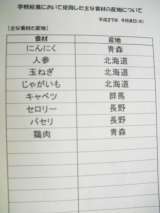 学校給食において使用した主な食材の産地について
【主な食材の産地】
食材 産地
にんにく 青森
人参 北海道
玉ねぎ 北海道
じゃがいも 北海道
キャベツ 群馬
セロリー 長野
パセリ 長野
鶏肉 青森